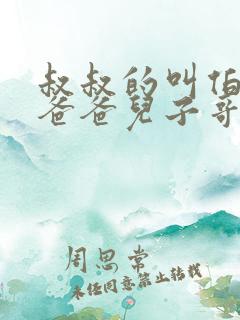 叔叔的叫伯
爸爸兒子哥
周思常
未经同意禁止转载